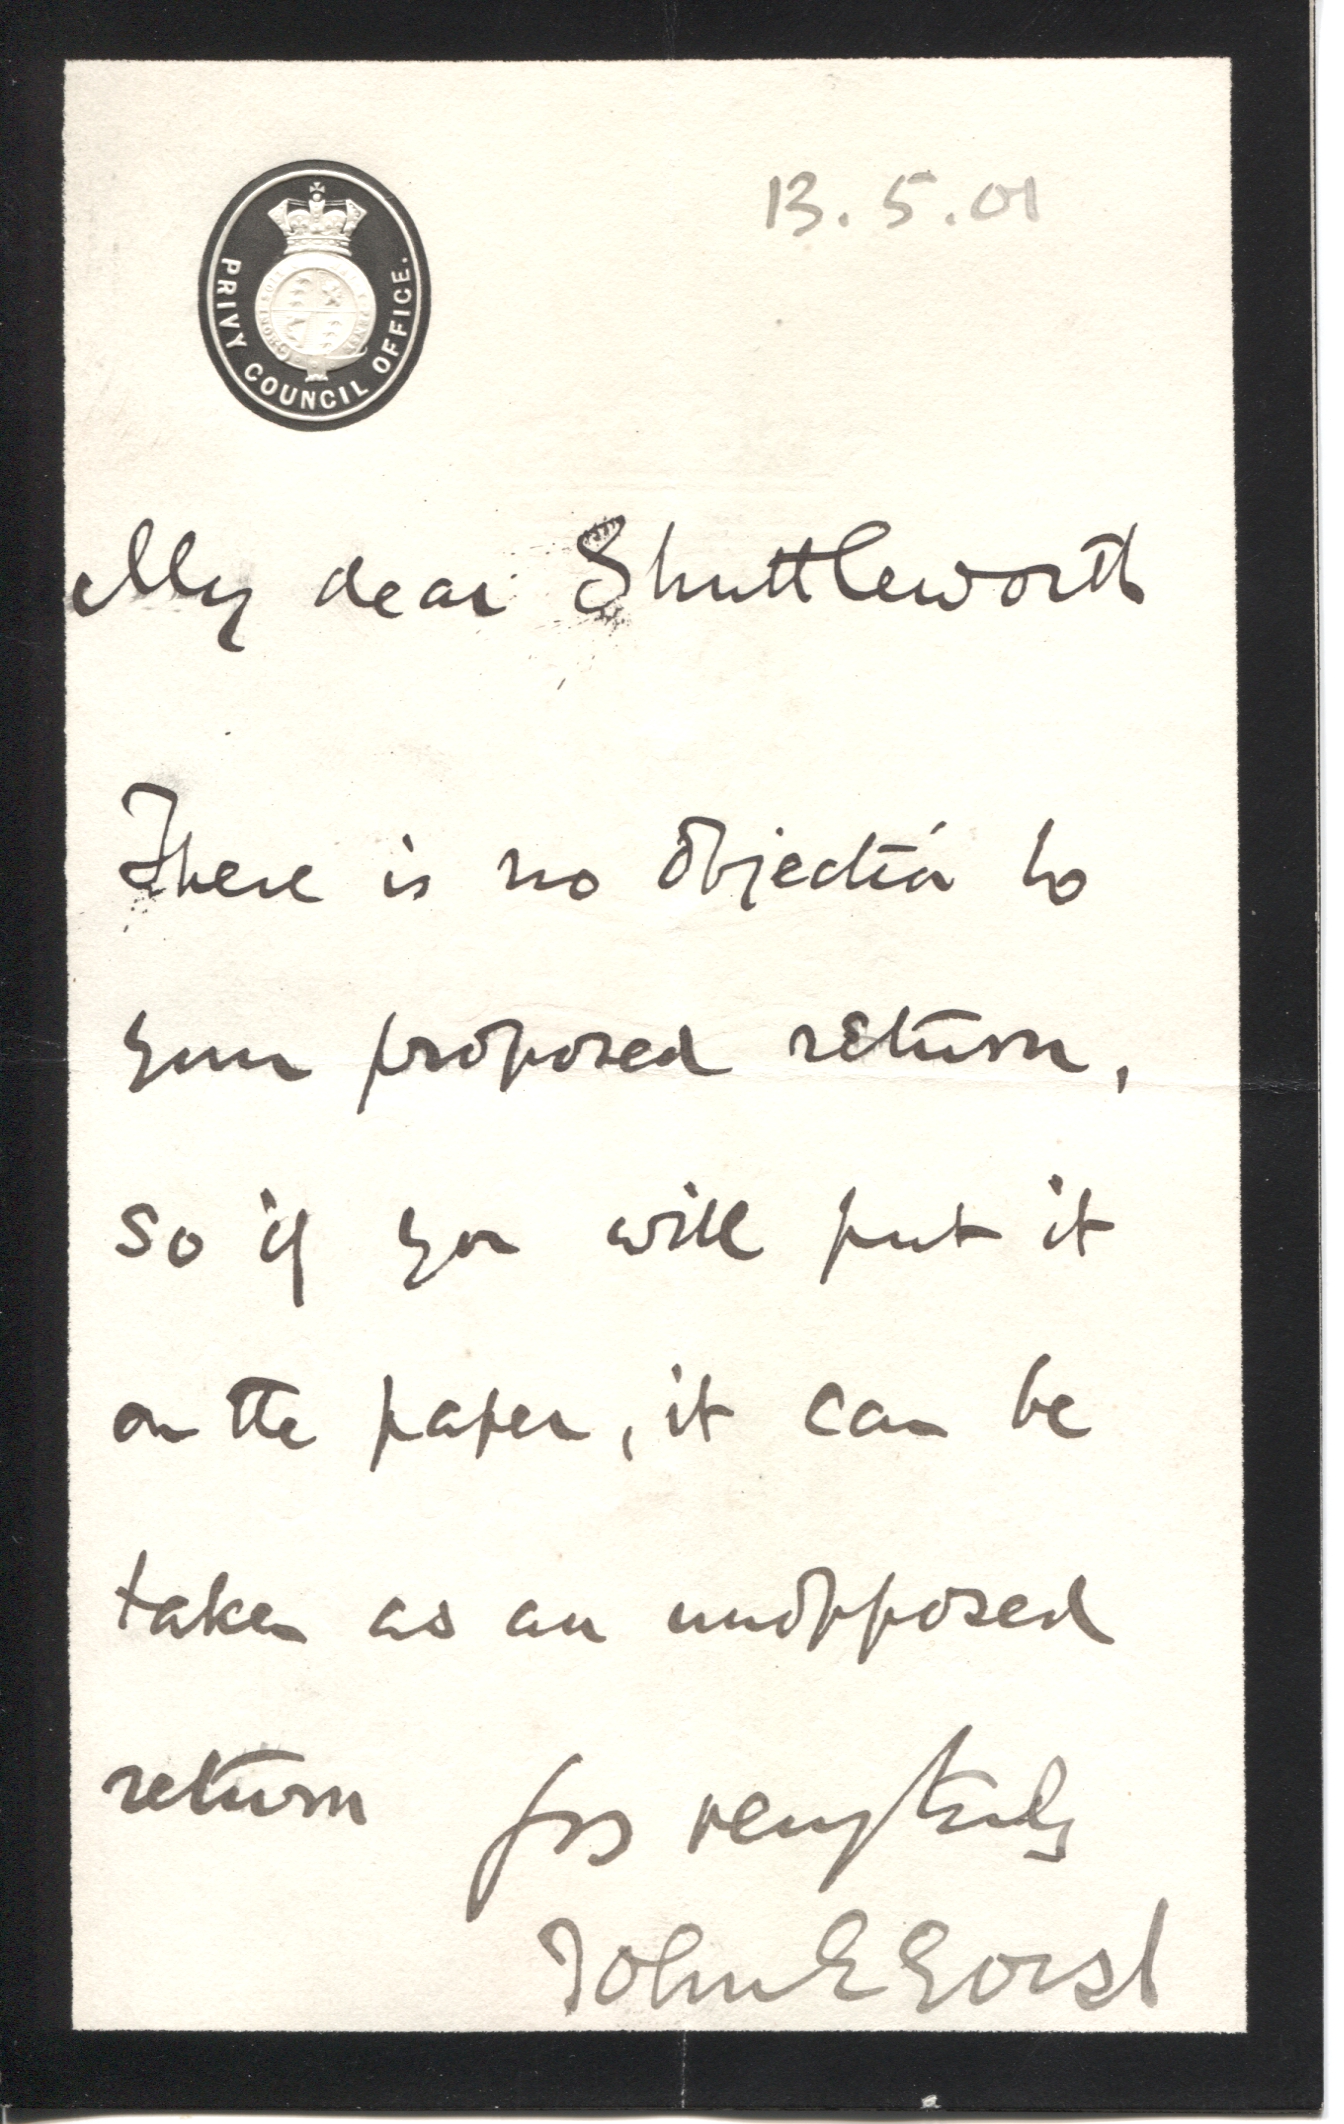 PRIVY COUNCIL OFFICE.
13.5.01
My dear Shuttleworth
There is no objection to
your proposed return,
so if you will put it
on the paper, it can be
taken as an unopposed
return Yrs very truly
John E Gorst